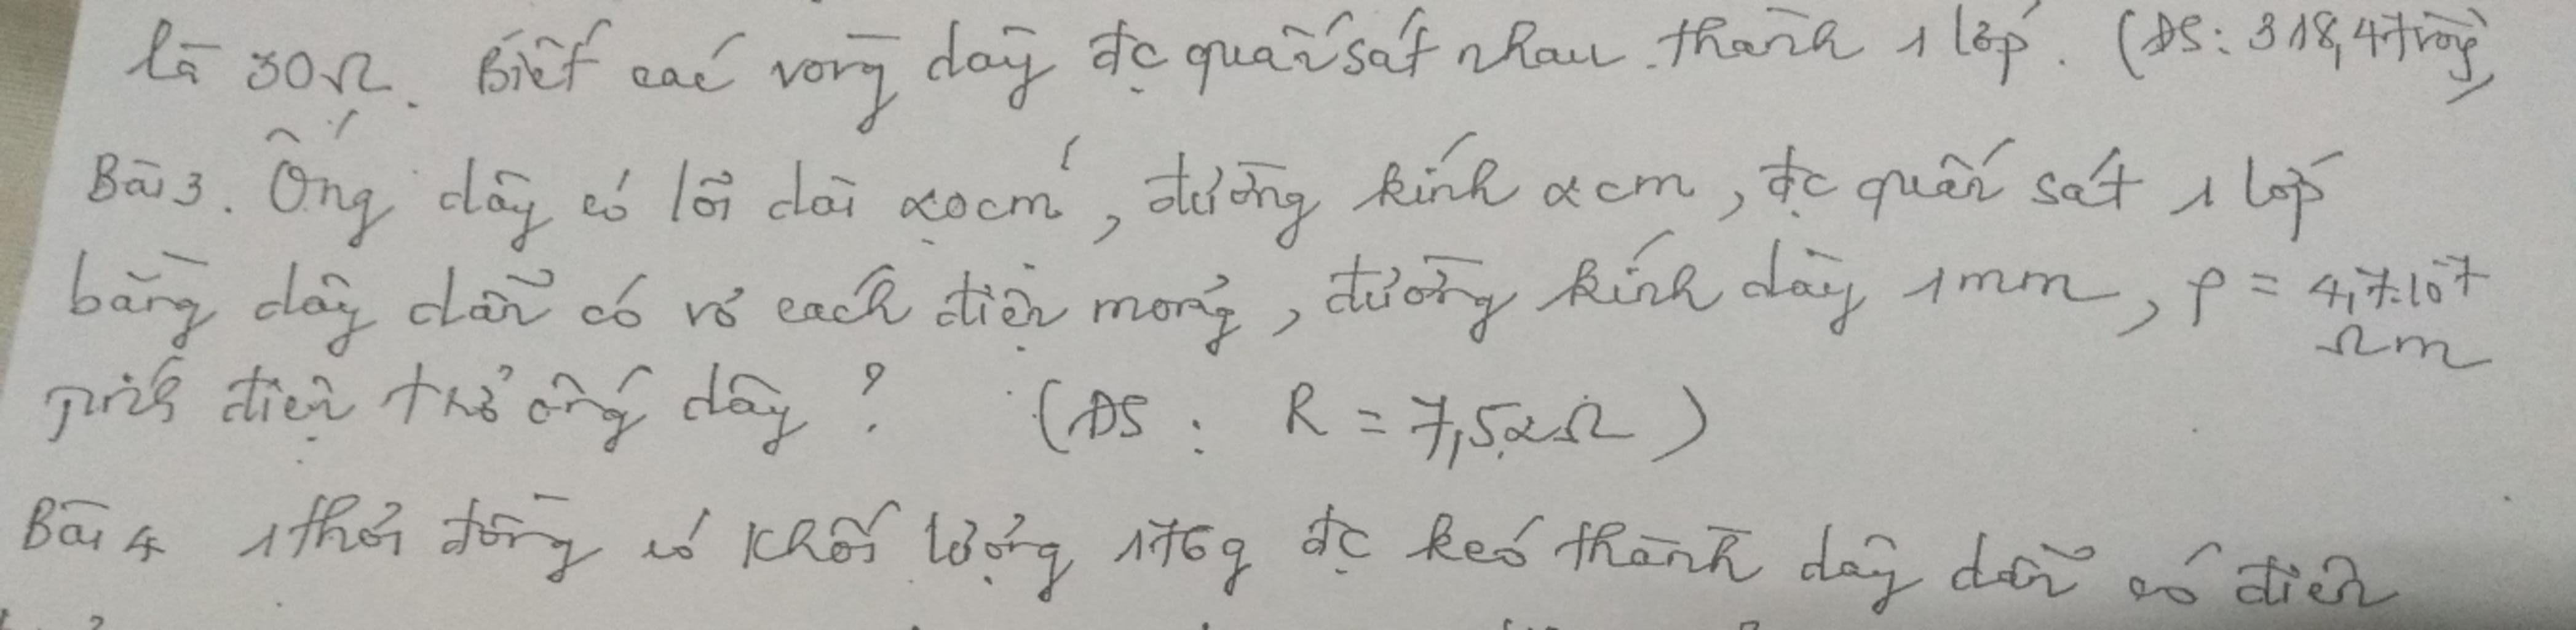 là 30Ω. Biết các vòng dây đc quấn sát nhau thành 1 lớp. (ĐS: 318,47 vòng)
Bài 3. Ống dây có lõi dài 20cm, đường kính 2cm, đc quấn sát 1 lớp
bằng dây dẫn có vỏ cách điện mỏng, đường kính dây 1mm, ρ = 4,7.10⁻⁷
Ωm
Tính điện trở ống dây? (ĐS: R = 7,52Ω)
Bài 4 1 thỏi đồng có khối lượng 176g đc kéo thành dây dẫn có điện